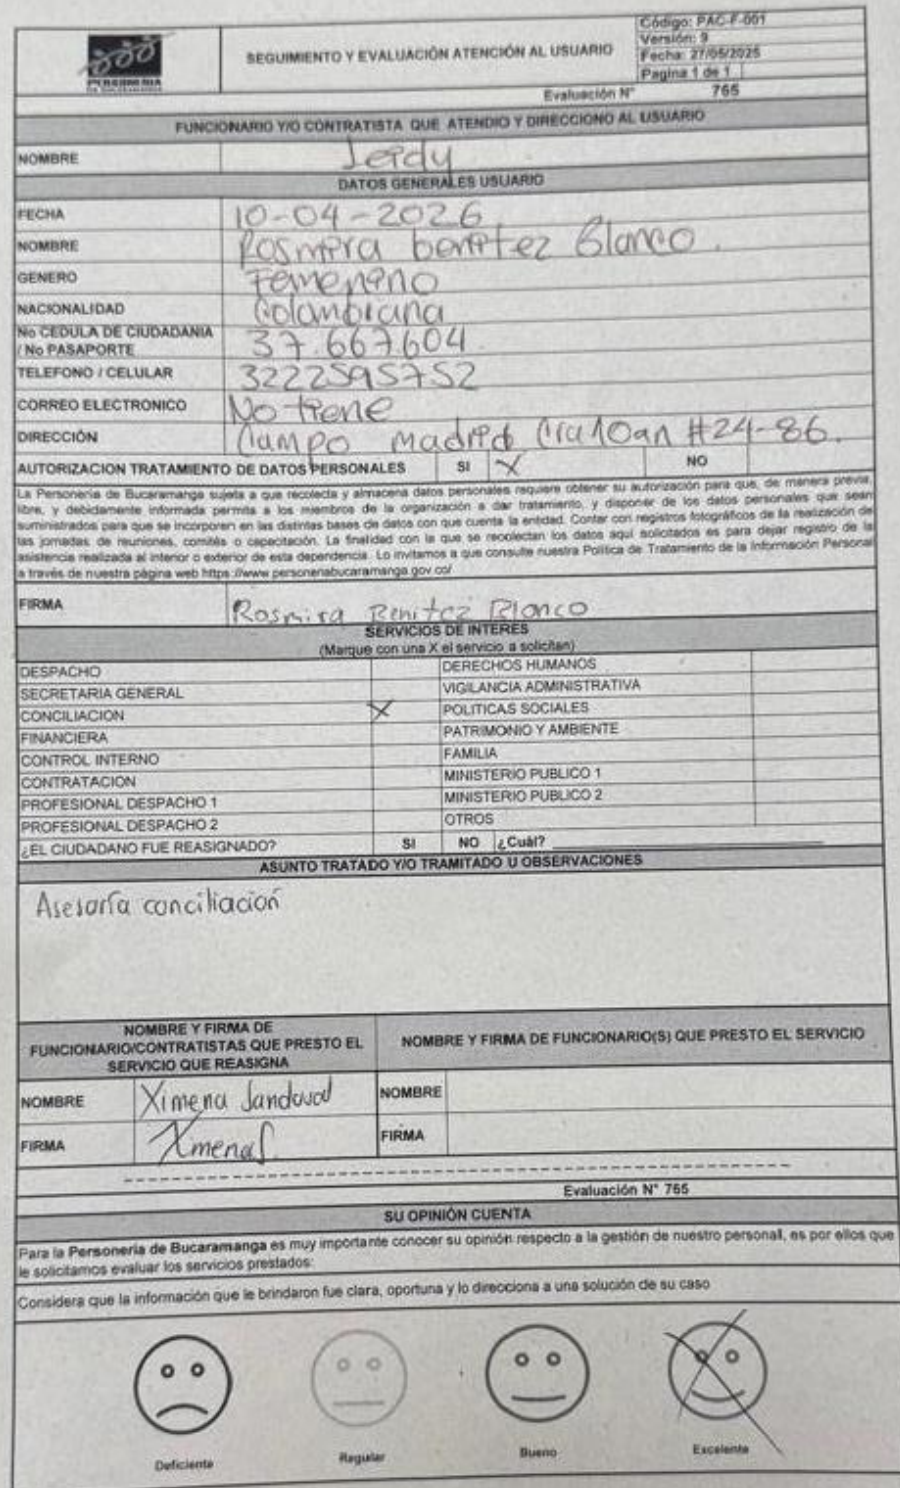 PERSONERIA
DE BUCARAMANGA
SEGUIMIENTO Y EVALUACIÓN ATENCIÓN AL USUARIO
Código: PAC-F-001
Versión: 9
Fecha: 27/05/2025
Pagina 1 de 1
Evaluación N° 765
FUNCIONARIO Y/O CONTRATISTA QUE ATENDIO Y DIRECCIONO AL USUARIO
NOMBRE Leidy
DATOS GENERALES USUARIO
FECHA 10-04-2026
NOMBRE Rosmira benitez Blanco.
GENERO Femenino
NACIONALIDAD Colombiana
No CEDULA DE CIUDADANIA / No PASAPORTE 37.667604
TELEFONO / CELULAR 3222595752
CORREO ELECTRONICO No tiene
DIRECCIÓN Campo madrid Cra 10an #24-86.
AUTORIZACION TRATAMIENTO DE DATOS PERSONALES SI X NO
La Personería de Bucaramanga sujeta a que recolecta y almacena datos personales requiere obtener su autorización para que, de manera previa,
libre, y debidamente informada permita a los miembros de la organización a dar tratamiento, y disponer de los datos personales que sean
suministrados para que se incorporen en las distintas bases de datos con que cuenta la entidad. Contar con registros fotográficos de la realización de
las jornadas de reuniones, comités o capacitación. La finalidad con la que se recolectan los datos aquí solicitados es para dejar registro de la
asistencia realizada al interior o exterior de esta dependencia. Lo invitamos a que consulte nuestra Política de Tratamiento de la Información Personal
a través de nuestra página web https://www.personeriabucaramanga.gov.co/
FIRMA Rosmira Benitez Blanco
SERVICIOS DE INTERES
(Marque con una X el servicio a solicitan)
DESPACHO DERECHOS HUMANOS
SECRETARIA GENERAL VIGILANCIA ADMINISTRATIVA
CONCILIACION X POLITICAS SOCIALES
FINANCIERA PATRIMONIO Y AMBIENTE
CONTROL INTERNO FAMILIA
CONTRATACION MINISTERIO PUBLICO 1
PROFESIONAL DESPACHO 1 MINISTERIO PUBLICO 2
PROFESIONAL DESPACHO 2 OTROS
¿EL CIUDADANO FUE REASIGNADO? SI NO ¿Cuál?
ASUNTO TRATADO Y/O TRAMITADO U OBSERVACIONES
Asesoría conciliación
NOMBRE Y FIRMA DE FUNCIONARIO/CONTRATISTAS QUE PRESTO EL SERVICIO QUE REASIGNA
NOMBRE Y FIRMA DE FUNCIONARIO(S) QUE PRESTO EL SERVICIO
NOMBRE Ximena Sandoval NOMBRE
FIRMA XimenaS FIRMA
Evaluación N° 765
SU OPINIÓN CUENTA
Para la Personería de Bucaramanga es muy importante conocer su opinión respecto a la gestión de nuestro personal, es por ellos que
le solicitamos evaluar los servicios prestados:
Considera que la información que le brindaron fue clara, oportuna y lo direcciona a una solución de su caso
Deficiente Regular Bueno Excelente